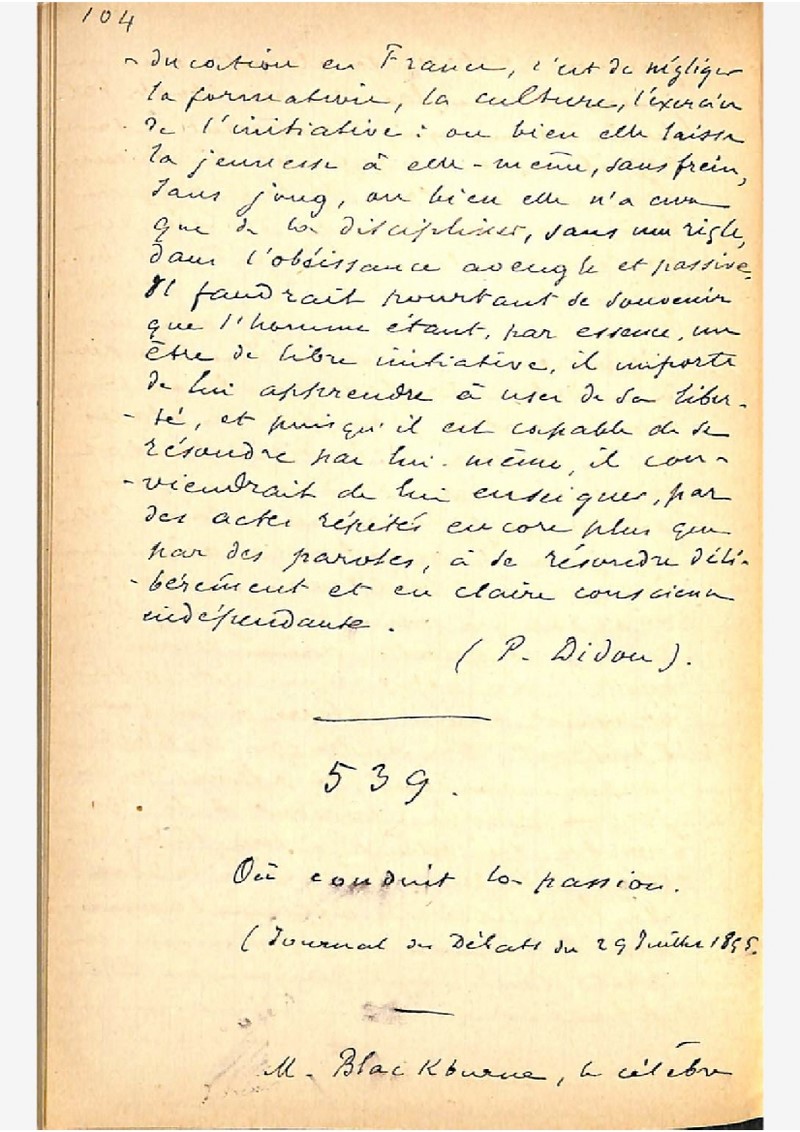 104
- ducation en France, c'est de négliger
la formation, la culture, l'exercice
de l'initiative : ou bien elle laisse
la jeunesse à elle-même, sans frein,
sans joug, ou bien elle n'a cure
que de la discipliner, sans une règle,
dans l'obéissance aveugle et passive.
Il faudrait pourtant se souvenir
que l'homme étant, par essence, un
être de libre initiative, il importe
de lui apprendre à user de sa liber-
- té, et puisqu'il est capable de se
résoudre par lui-même, il con-
- viendrait de lui enseigner, par
des actes répétés encore plus que
par des paroles, à se résoudre déli-
- bérément et en claire conscience
indépendante.
(P. Didon).
539.
Où conduit la passion.
(Journal des Débats du 29 Juillet 1895.
M. Blackburne, le célèbre